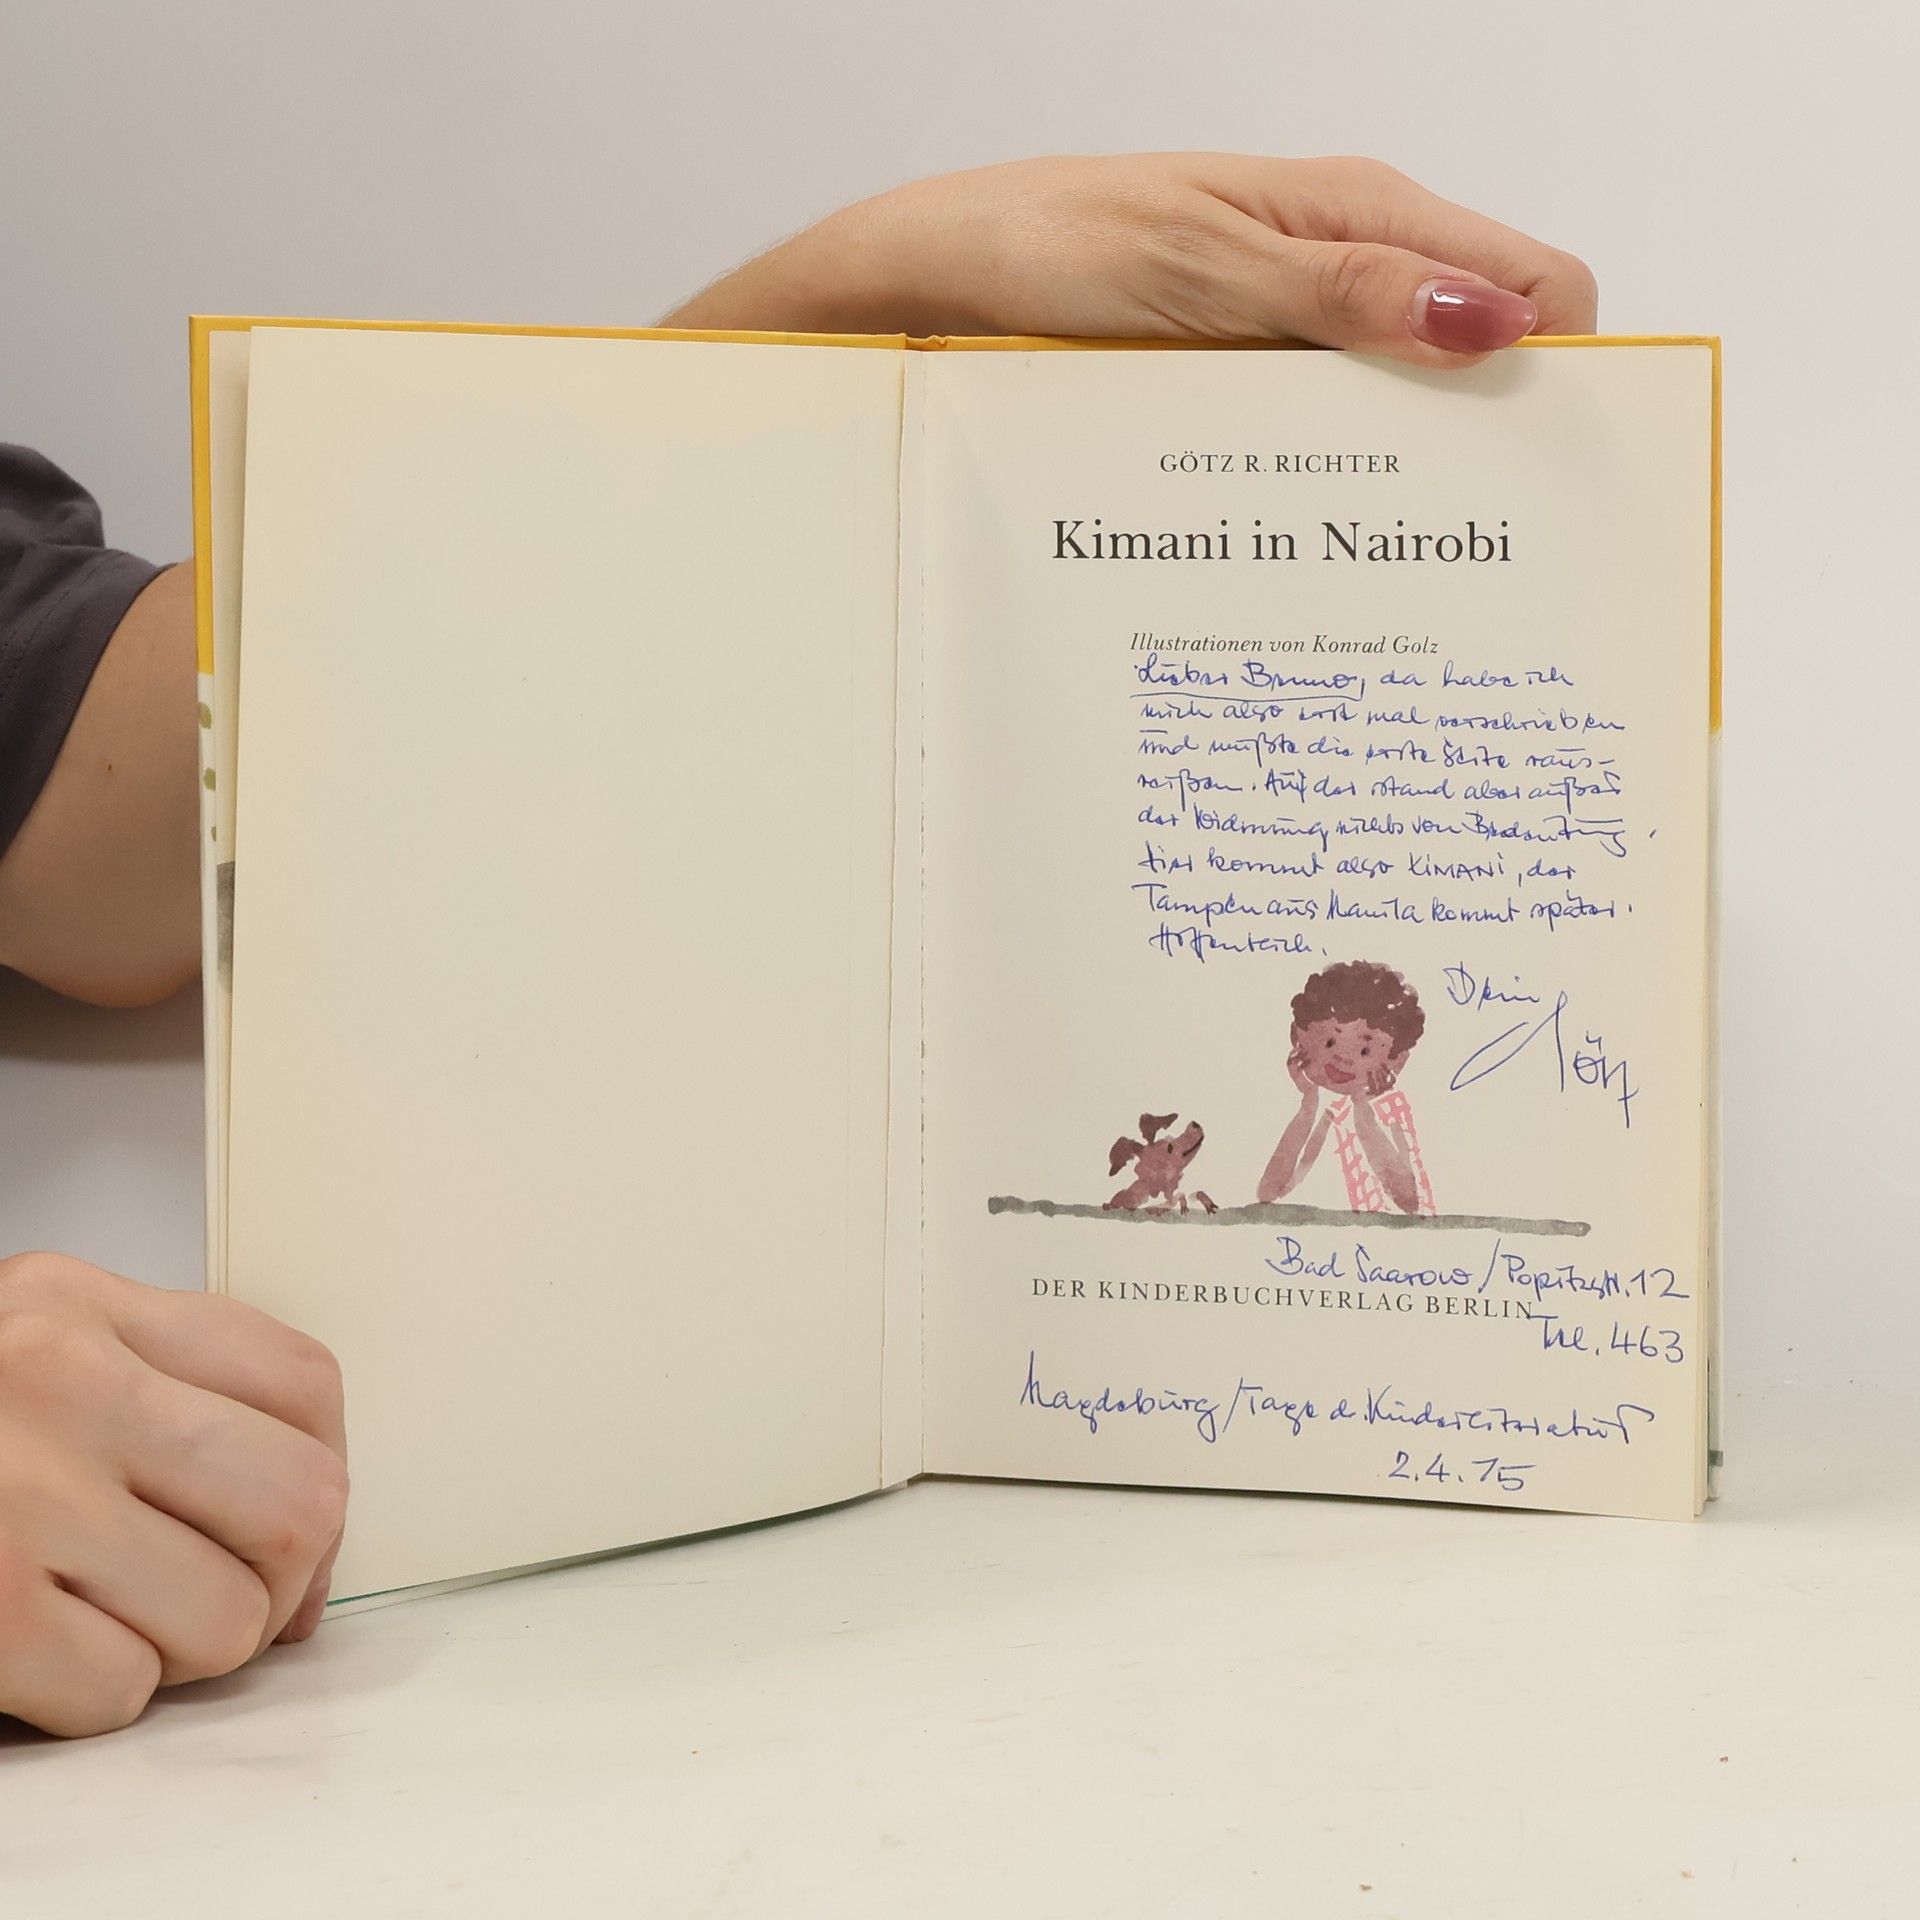 GÖTZ R. RICHTER
Kimani in Nairobi
Illustrationen von Konrad Golz
Lieber Bruno, da habe ich
mich also erst mal verschrieben
und mußte die erste Seite raus-
reißen. Auf der stand aber außer
der Widmung nichts von Bedeutung.
Hier kommt also KIMANI, der
Tampen aus Manila kommt später.
Hoffentlich.
Dein
Götz
Bad Saarow / Popitzstr. 12
DER KINDERBUCHVERLAG BERLIN
Tel. 463
Magdeburg / Tage d. Kinderliteratur
2.4.75